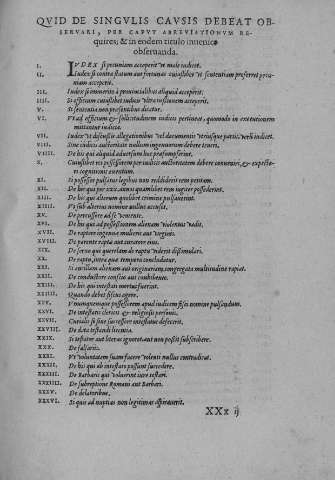 QVID DE SINGVLIS CAVSIS DEBEAT OB-
SERVARI, PER CAPVT ABREVIATIONVM RE-
quires; & in eodem titulo inuenies
obseruanda.
I. IVDEX si pecuniam acceperit vt male iudicet.
II. Iudex si contra statum aut fortunas cuiuslibet vt sententiam proferret pecuniam acceperit.
III. Iudex si immerito à prouincialibus aliquid acceperit.
IIII. Si officium cuiuslibet iudicis vltra acceperit.
V. Si sententia non praesentibus dicatur.
VI. Vt ad officium & sollicitudinem iudicis pertineat, quomodo in exsecutionem mittantur iudicia.
VII. Iudex vt discussis allegationibus vel documentis vtriusque partis verbis iudicet.
VIII. Sine iudicis auctoritate nullum ingenuorum debere teneri.
VIIII. De his qui aliquid aduersum huc praesumpserint.
X. Cuiuslibet rei possessorem per iudicis auctoritatem debere conueniri, & expeditae cognitionis euentum.
XI. Si possessor pulsatus legibus non reddiderit rem petitam.
XII. De his qui per xxx. annos quamlibet rem iugiter possederint.
XIII. De his qui alterum quolibet crimine pulsauerint.
XIIII. Vt sub alterius nomine nullus accuset.
XV. De percussore ad se veniente.
XVI. De his qui ad possessionem alienam violentus vadit.
XVII. De raptore ingenuae mulieris aut virginis.
XVIII. De parente rapta aut curatore eius.
XIX. De seruo qui querelam de raptu viderit dissimulari.
XX. De raptu, intra quae tempora concludatur.
XXI. Si ancillam alienam aut originariam congregata multitudine rapiat.
XXII. De conductore conscio aut conhibente.
XXIII. De his qui intestati mortui fuerint.
XXIIII. Quando debet fiscus agere.
XXV. Vt unumquemque possessorem apud iudicem fisci nomine pulsandum.
XXVI. De intestatis clericis & religiosis personis.
XXVII. Curialis si sine successore intestatus defecerit.
XXVIII. De data testandi licentia.
XXIX. Si testator aut literas ignoret aut non possit subscribere.
XXX. De falsariis.
XXXI. Vt voluntatem suam facere volenti nullus contradicat.
XXXII. De his qui ab intestato possunt succedere.
XXXIII. De Barbaris qui voluerint iure testari.
XXXIIII. De subreptione Romani aut Barbari.
XXXV. De delatoribus.
XXXVI. Si quis ad nuptias non legitimas aspirauerit.
XXx ij